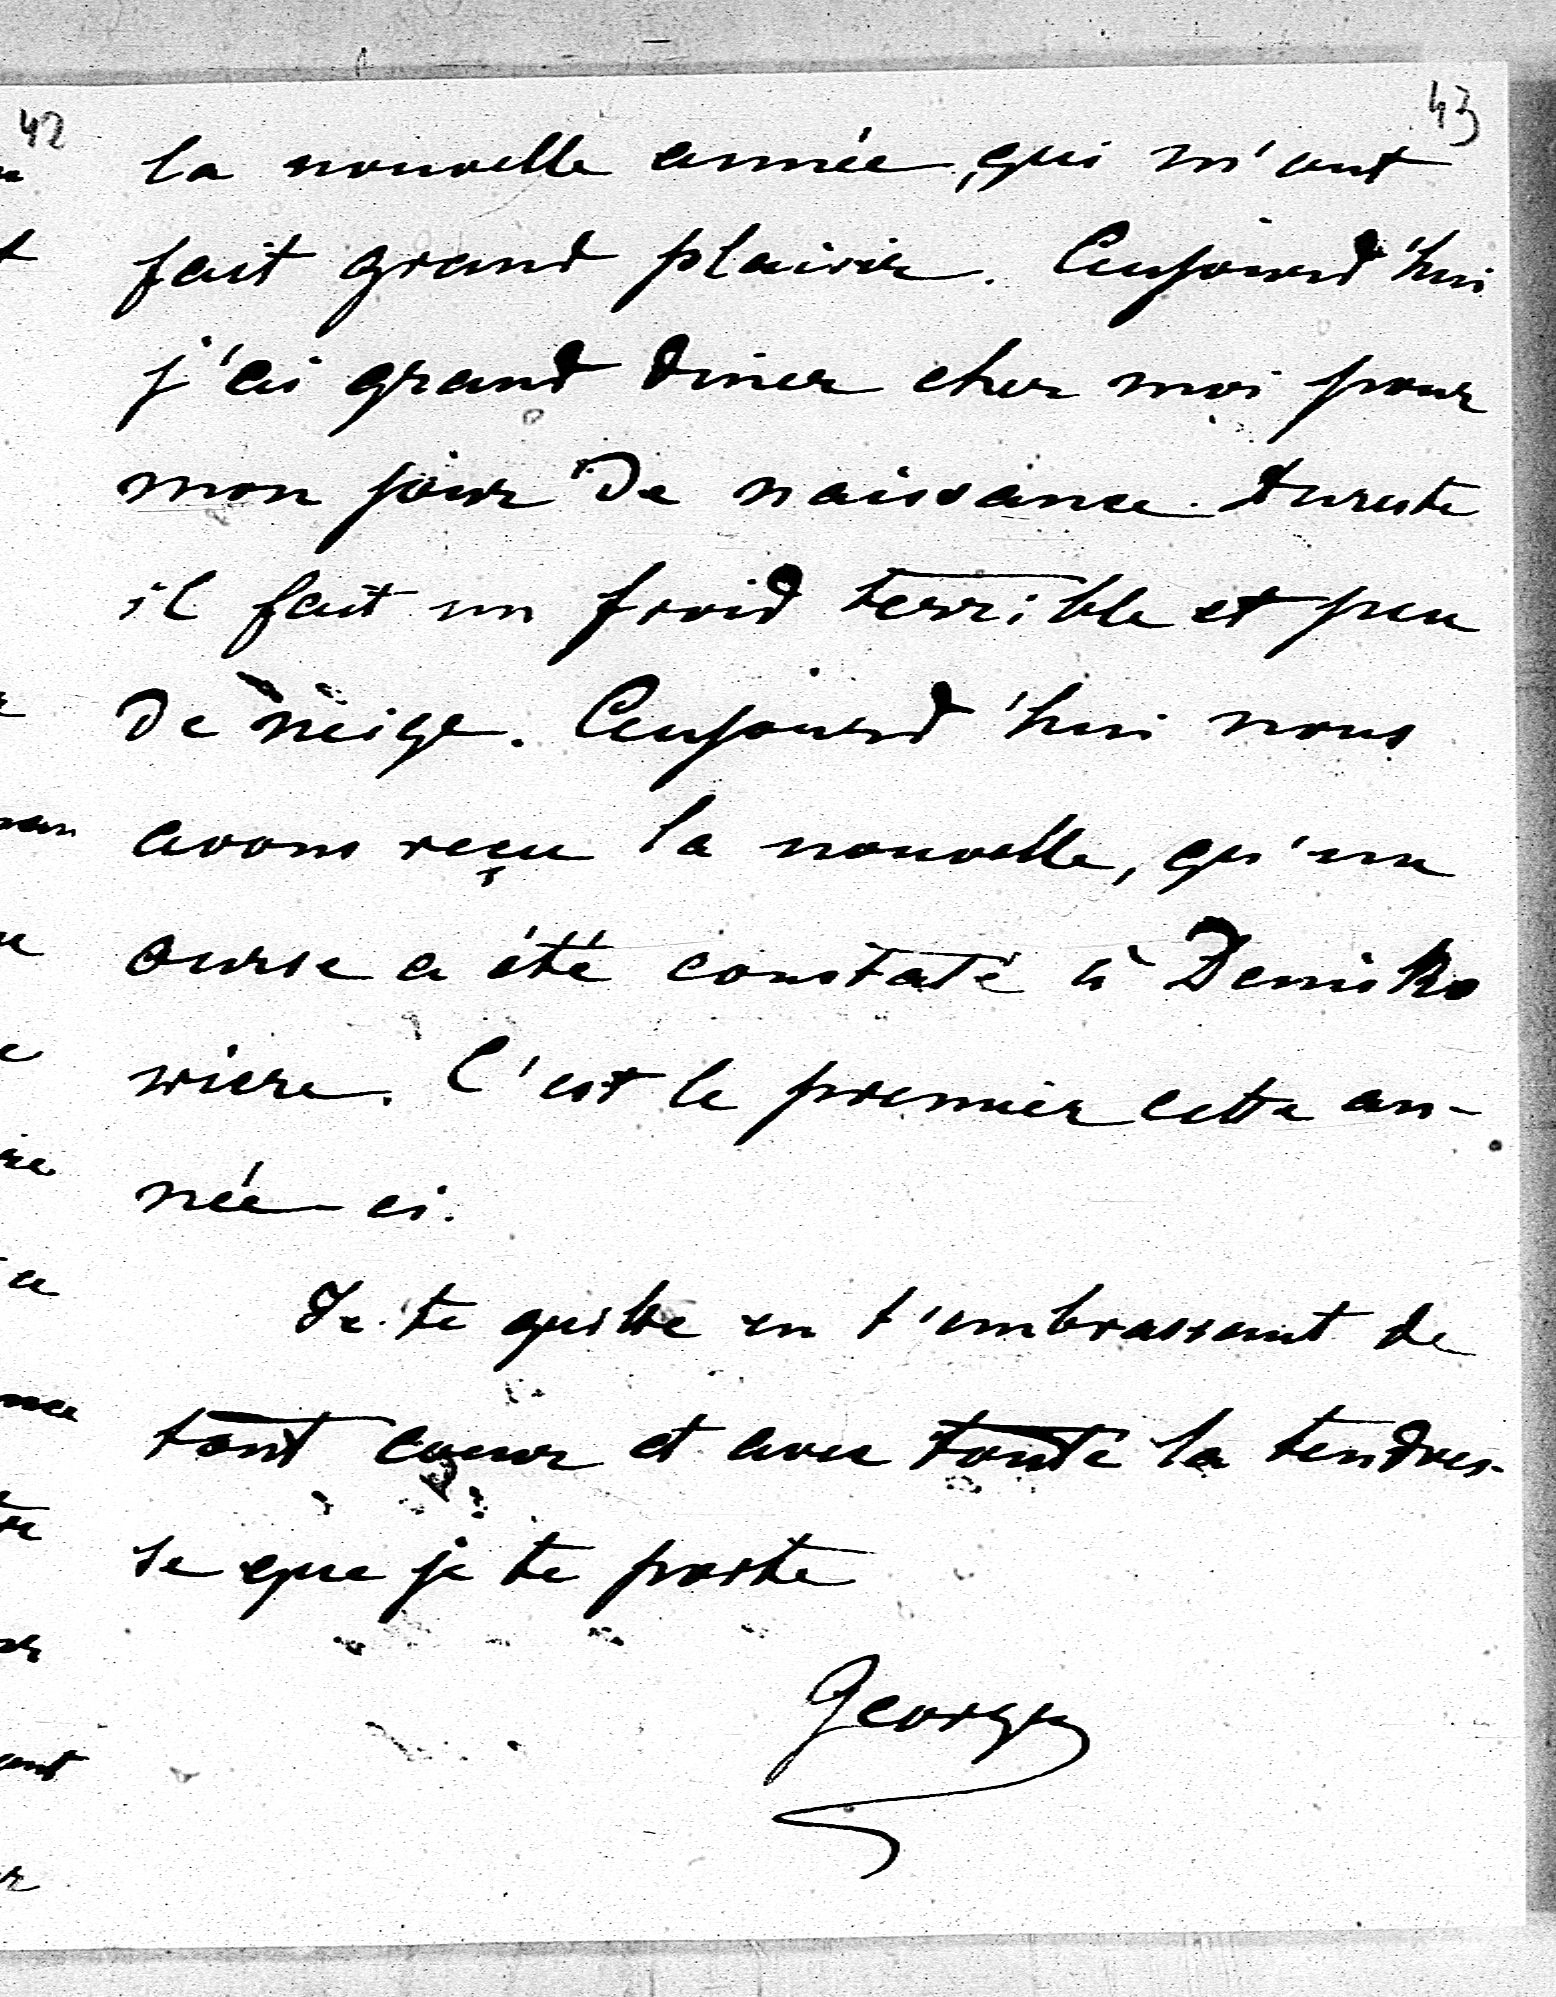 42
43
la nouvelle année, qui m'ont
fait grand plaisir. Aujourd'hui
j'ai grand diner chez moi pour
mon jour de naissance. Dureste
il fait un froid terrible et peu
de neige. Aujourd'hui nous
avons reçu la nouvelle, qu'une
ourse a été constaté à Denisko
wiere. C'est le premier cette an-
née-ci.
Je te quitte en t'embrassant de
tout coeur et avec toute la tendres-
se que je te porte
Georges